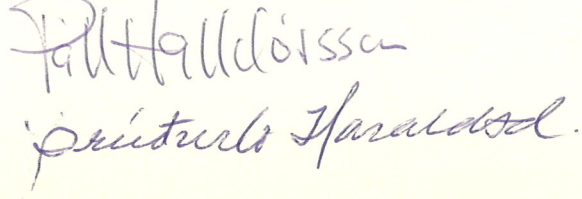 Páll Halldórsson
Þrúðurlo Haraldsd.